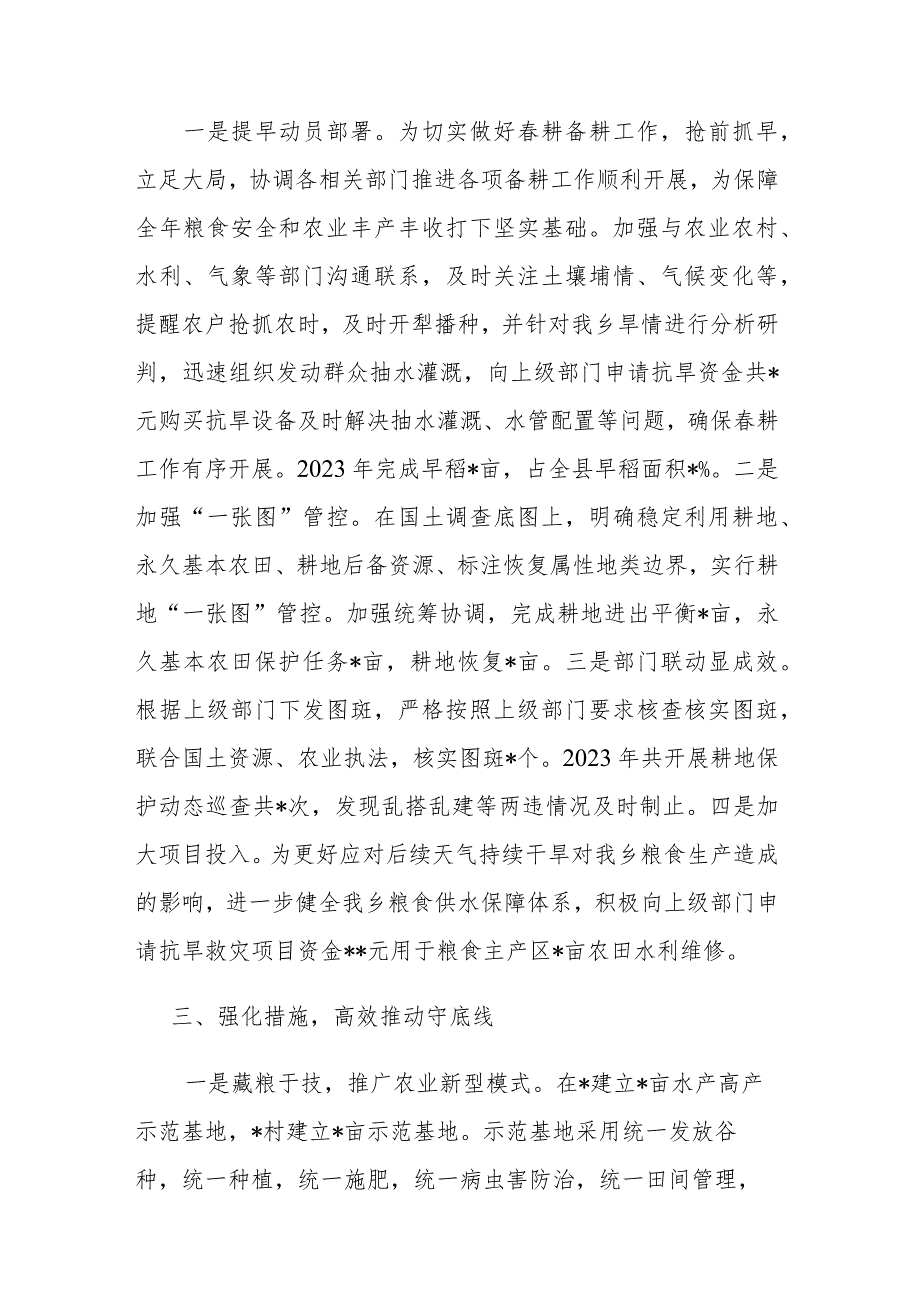 一是提早动员部署。为切实做好春耕备耕工作，抢前抓早，
立足大局，协调各相关部门推进各项备耕工作顺利开展，为保障
全年粮食安全和农业丰产丰收打下坚实基础。加强与农业农村、
水利、气象等部门沟通联系，及时关注土壤埔情、气候变化等，
提醒农户抢抓农时，及时开犁播种，并针对我乡旱情进行分析研
判，迅速组织发动群众抽水灌溉，向上级部门申请抗旱资金共*
元购买抗旱设备及时解决抽水灌溉、水管配置等问题，确保春耕
工作有序开展。2023年完成早稻*亩，占全县早稻面积*%。二是
加强“一张图”管控。在国土调查底图上，明确稳定利用耕地、
永久基本农田、耕地后备资源、标注恢复属性地类边界，实行耕
地“一张图”管控。加强统筹协调，完成耕地进出平衡*亩，永
久基本农田保护任务*亩，耕地恢复*亩。三是部门联动显成效。
根据上级部门下发图斑，严格按照上级部门要求核查核实图斑，
联合国土资源、农业执法，核实图斑*个。2023年共开展耕地保
护动态巡查共*次，发现乱搭乱建等两违情况及时制止。四是加
大项目投入。为更好应对后续天气持续干旱对我乡粮食生产造成
的影响，进一步健全我乡粮食供水保障体系，积极向上级部门申
请抗旱救灾项目资金**元用于粮食主产区*亩农田水利维修。
三、强化措施，高效推动守底线
一是藏粮于技，推广农业新型模式。在*建立*亩水产高产
示范基地，*村建立*亩示范基地。示范基地采用统一发放谷
种，统一种植，统一施肥，统一病虫害防治，统一田间管理，